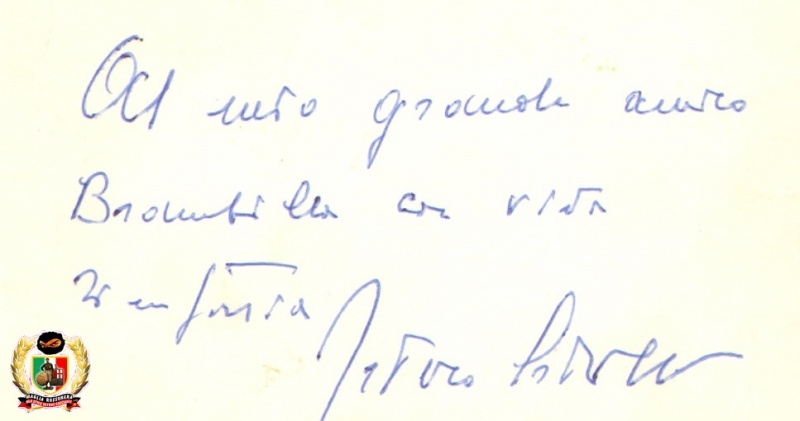 Al mio grande amico
Brambilla con viva
simpatia Arturo
MAGLIA ROSSONERA